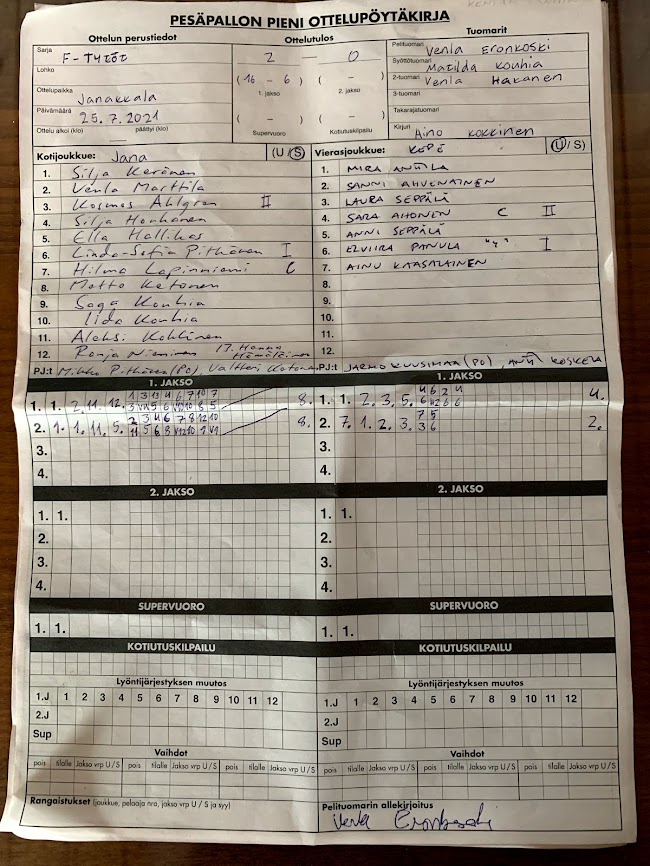 PESÄPALLON PIENI OTTELUPÖYTÄKIRJA
Ottelun perustiedot Ottelutulos Tuomarit
Sarja F-TYTÖT
Lohko
Ottelupaikka Janakkala
Päivämäärä 25.7.2021
Ottelu alkoi (klo) päättyi (klo)
2 – 0
(16 – 6) ( – )
1. jakso 2. jakso
( – ) ( – )
Supervuoro Kotiutuskilpailu
Pelituomari Venla Eronkoski
Syöttötuomari Matilda Kouhia
2-tuomari Venla Hakanen
3-tuomari
Takarajatuomari
Kirjuri Aino Kokkinen
Kotijoukkue: Jana (U/S)
1. Silja Keränen
2. Venla Marttila
3. Kosmos Ahlgren II
4. Silja Honkanen
5. Ella Hallikas
6. Linda-Sofia Pitkänen I
7. Hilma Lapinniemi C
8. Matto Ketonen
9. Saga Kouhia
10. Iida Kouhia
11. Aleksi Kohlinen
12. Ronja Nieminen 13. Hanna Hämäläinen
PJ:t Mikko Pitkänen (PO), Valtteri
Vierasjoukkue: KOPE (U/S)
1. MIRA ANTTILA
2. SANNI AHVENAINEN
3. LAURA SEPPÄLÄ
4. SARA AHONEN C II
5. ANNI SEPPÄLÄ
6. ELVIIRA PANULA "4" I
7. AINU KAASALAINEN
8.
9.
10.
11.
12.
PJ:t JARMO KUUSIMAA (PO), ANTTI KOSKELA
1. JAKSO 1. JAKSO
1. 1. 2. 11. 12. 8.
2. 1. 1. 11. 5. 8.
3.
4.
1. 1. 2. 3. 5. 4.
2. 7. 1. 2. 3. 2.
3.
4.
2. JAKSO 2. JAKSO
1. 1. 1. 1.
2. 2.
3. 3.
4. 4.
SUPERVUORO SUPERVUORO
1. 1. 1. 1.
KOTIUTUSKILPAILU KOTIUTUSKILPAILU
Lyöntijärjestyksen muutos Lyöntijärjestyksen muutos
1.J 1 2 3 4 5 6 7 8 9 10 11 12 1.J 1 2 3 4 5 6 7 8 9 10 11 12
2.J 2.J
Sup Sup
Vaihdot Vaihdot
pois tilalle Jakso vrp U / S pois tilalle Jakso vrp U / S pois tilalle Jakso vrp U / S pois tilalle Jakso vrp U / S pois tilalle Jakso vrp U / S pois tilalle Jakso vrp U / S
Rangaistukset (joukkue, pelaaja nro, jakso vrp U / S ja syy)
Pelituomarin allekirjoitus
Venla Eronkoski